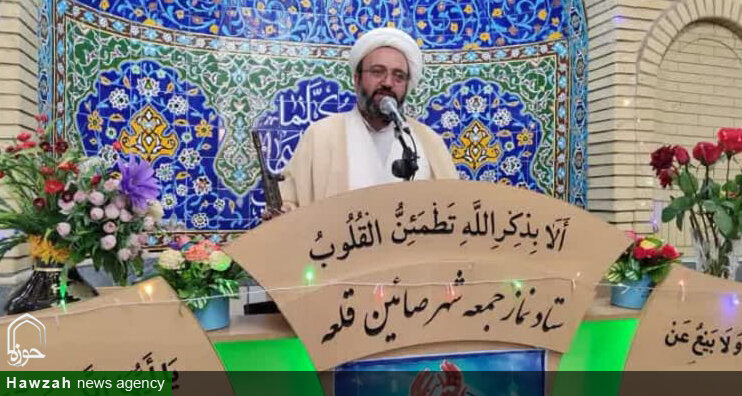 أَلَا بِذِكْرِ اللَّهِ تَطْمَئِنُّ الْقُلُوبُ
ستاد نماز جمعه شهر صائین قلعه
وَلَا بَيْعٌ عَنْ
حوزه
Hawzah news agency